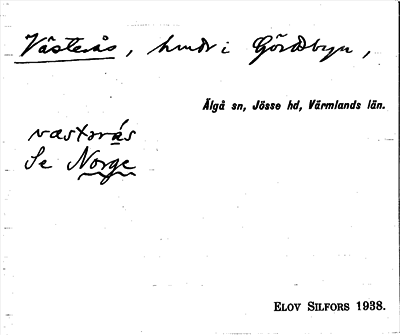 Västerås, hmdr i Gördsbyn,
Älgå sn, Jösse hd, Värmlands län.
væstərås
Se Norge
ELOV SILFORS 1938.